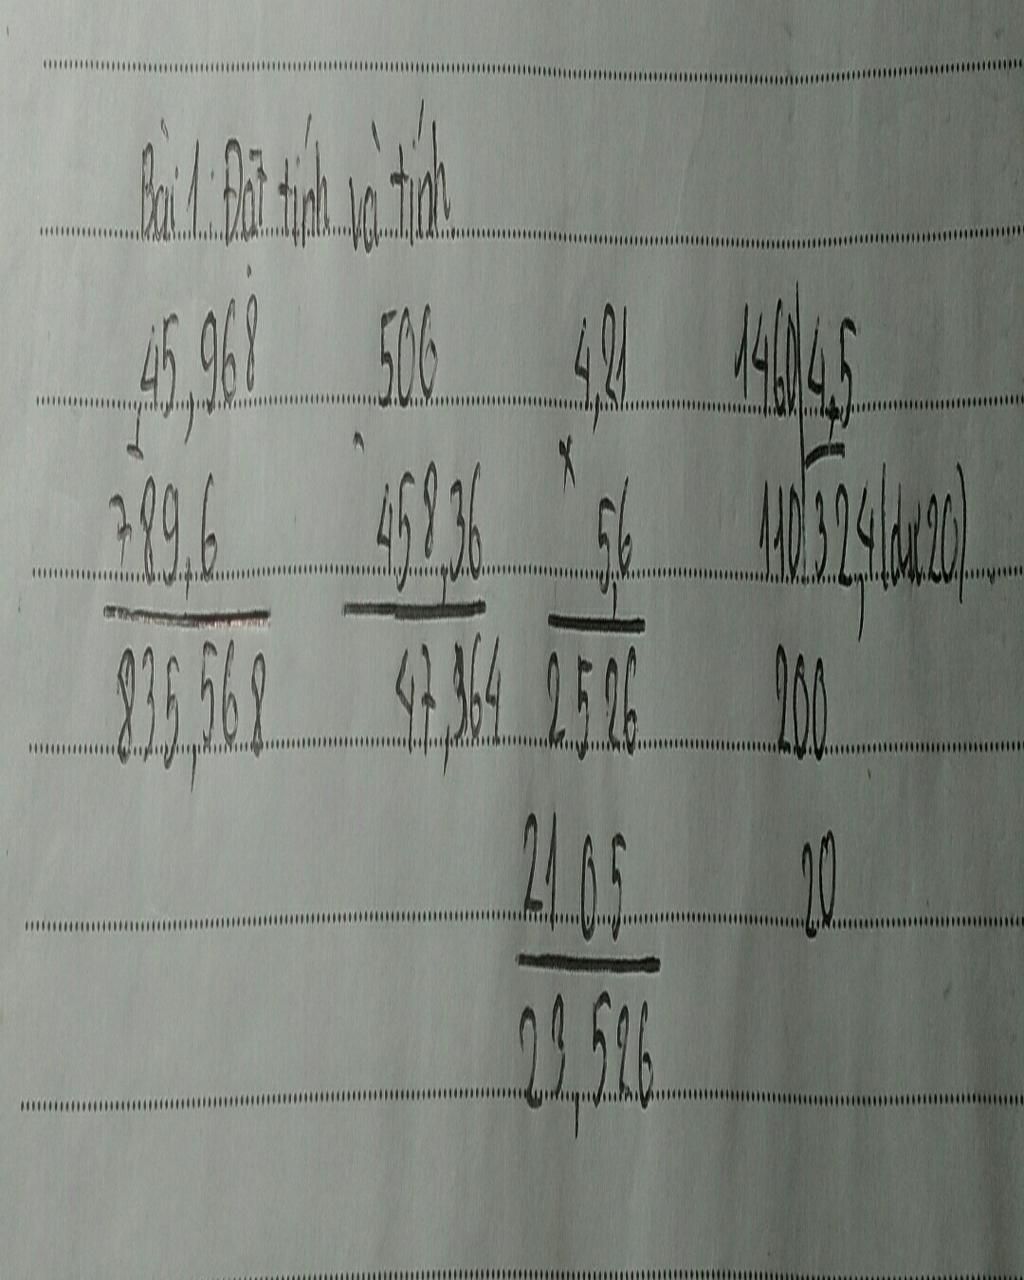 Bài 1: Đặt tính và tính.
45,968 506 4,21 1460 4,5
+ - x
789,6 458,36 5,6 110 324,4 (dư 20)
835,568 47,364 2526 200
2105 20
23,526